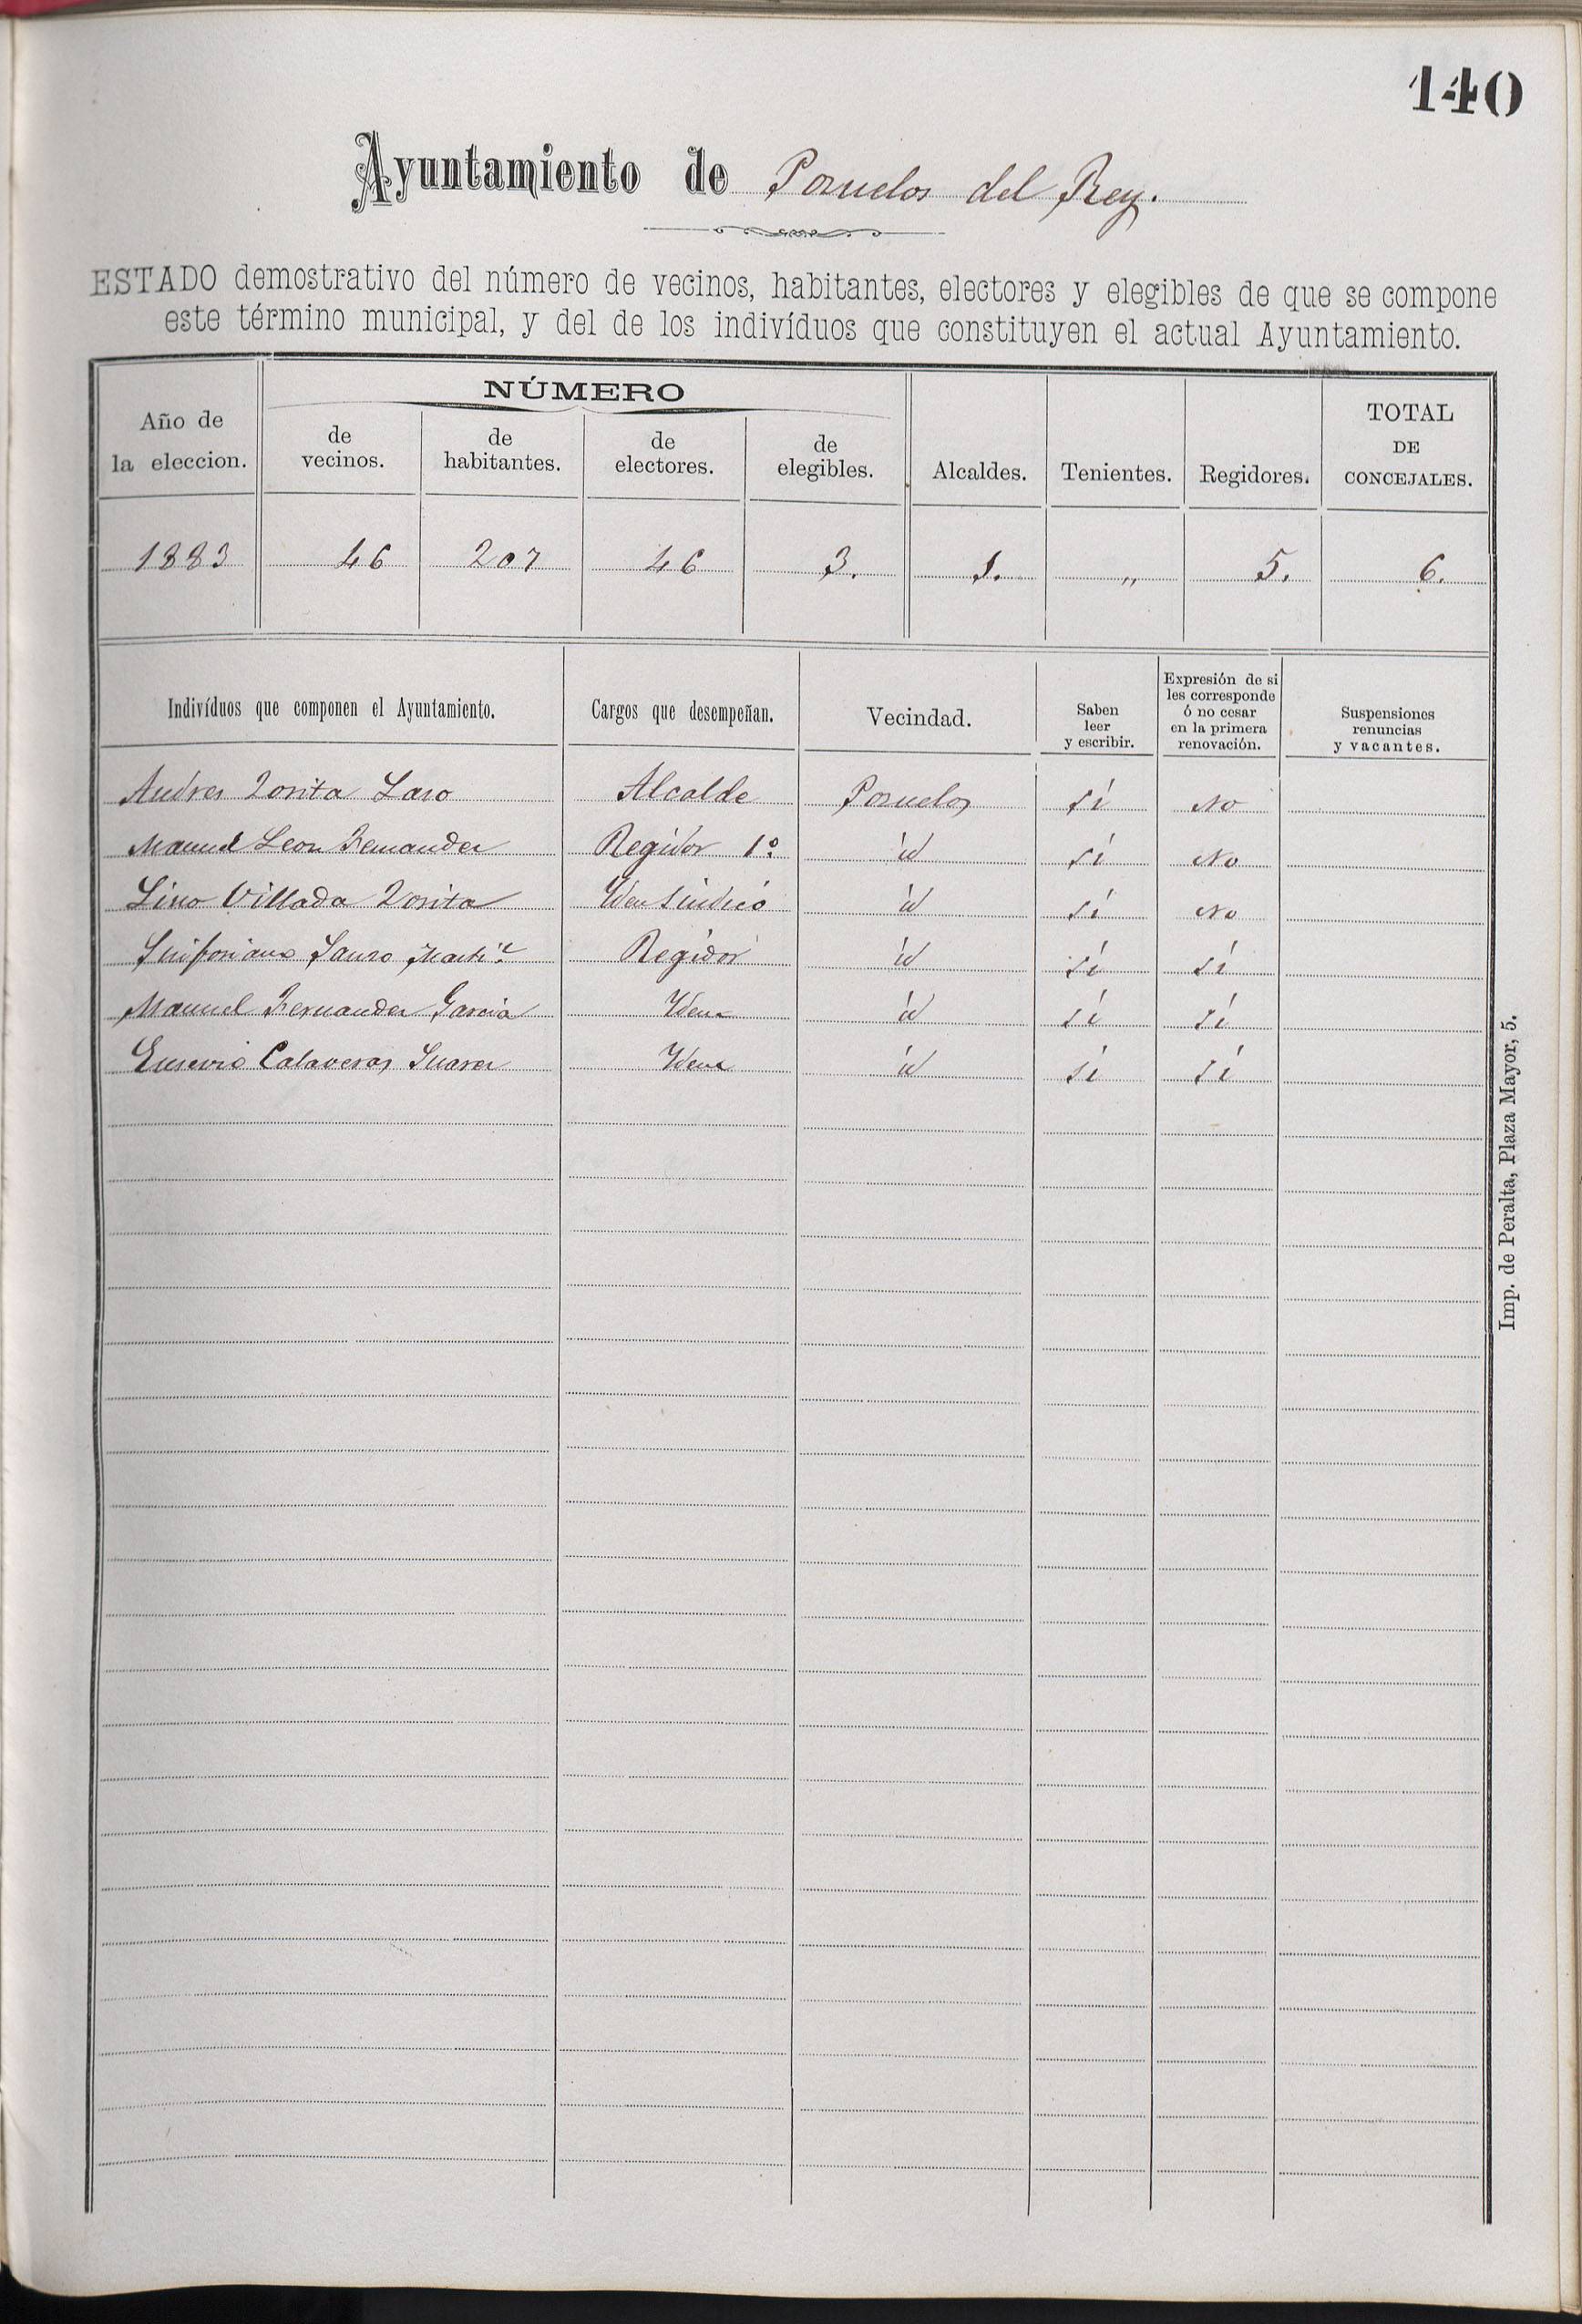 140
Ayuntamiento de Pozuelos del Rey.
ESTADO demostrativo del número de vecinos, habitantes, electores y elegibles de que se compone
este término municipal, y del de los indivíduos que constituyen el actual Ayuntamiento.
Año de la eleccion. NÚMERO de vecinos. de habitantes. de electores. de elegibles. Alcaldes. Tenientes. Regidores. TOTAL DE CONCEJALES.
1883 46 207 46 3. 1. „ 5. 6.
Indivíduos que componen el Ayuntamiento. Cargos que desempeñan. Vecindad. Saben leer y escribir. Expresión de si les corresponde ó no cesar en la primera renovación. Suspensiones renuncias y vacantes.
Andres Zorita Laso Alcalde Pozuelos Sí No
Manuel Leon Fernandez Regidor 1º id Sí No
Lino Villada Zorita Idem Sindico id Sí No
Sinforiano Regidor id Sí Sí
Manuel Fernandez Garcia Idem id Sí Sí
Eusevio Calaveras Suarez Idem id Sí Sí
Imp. de Peralta, Plaza Mayor, 5.